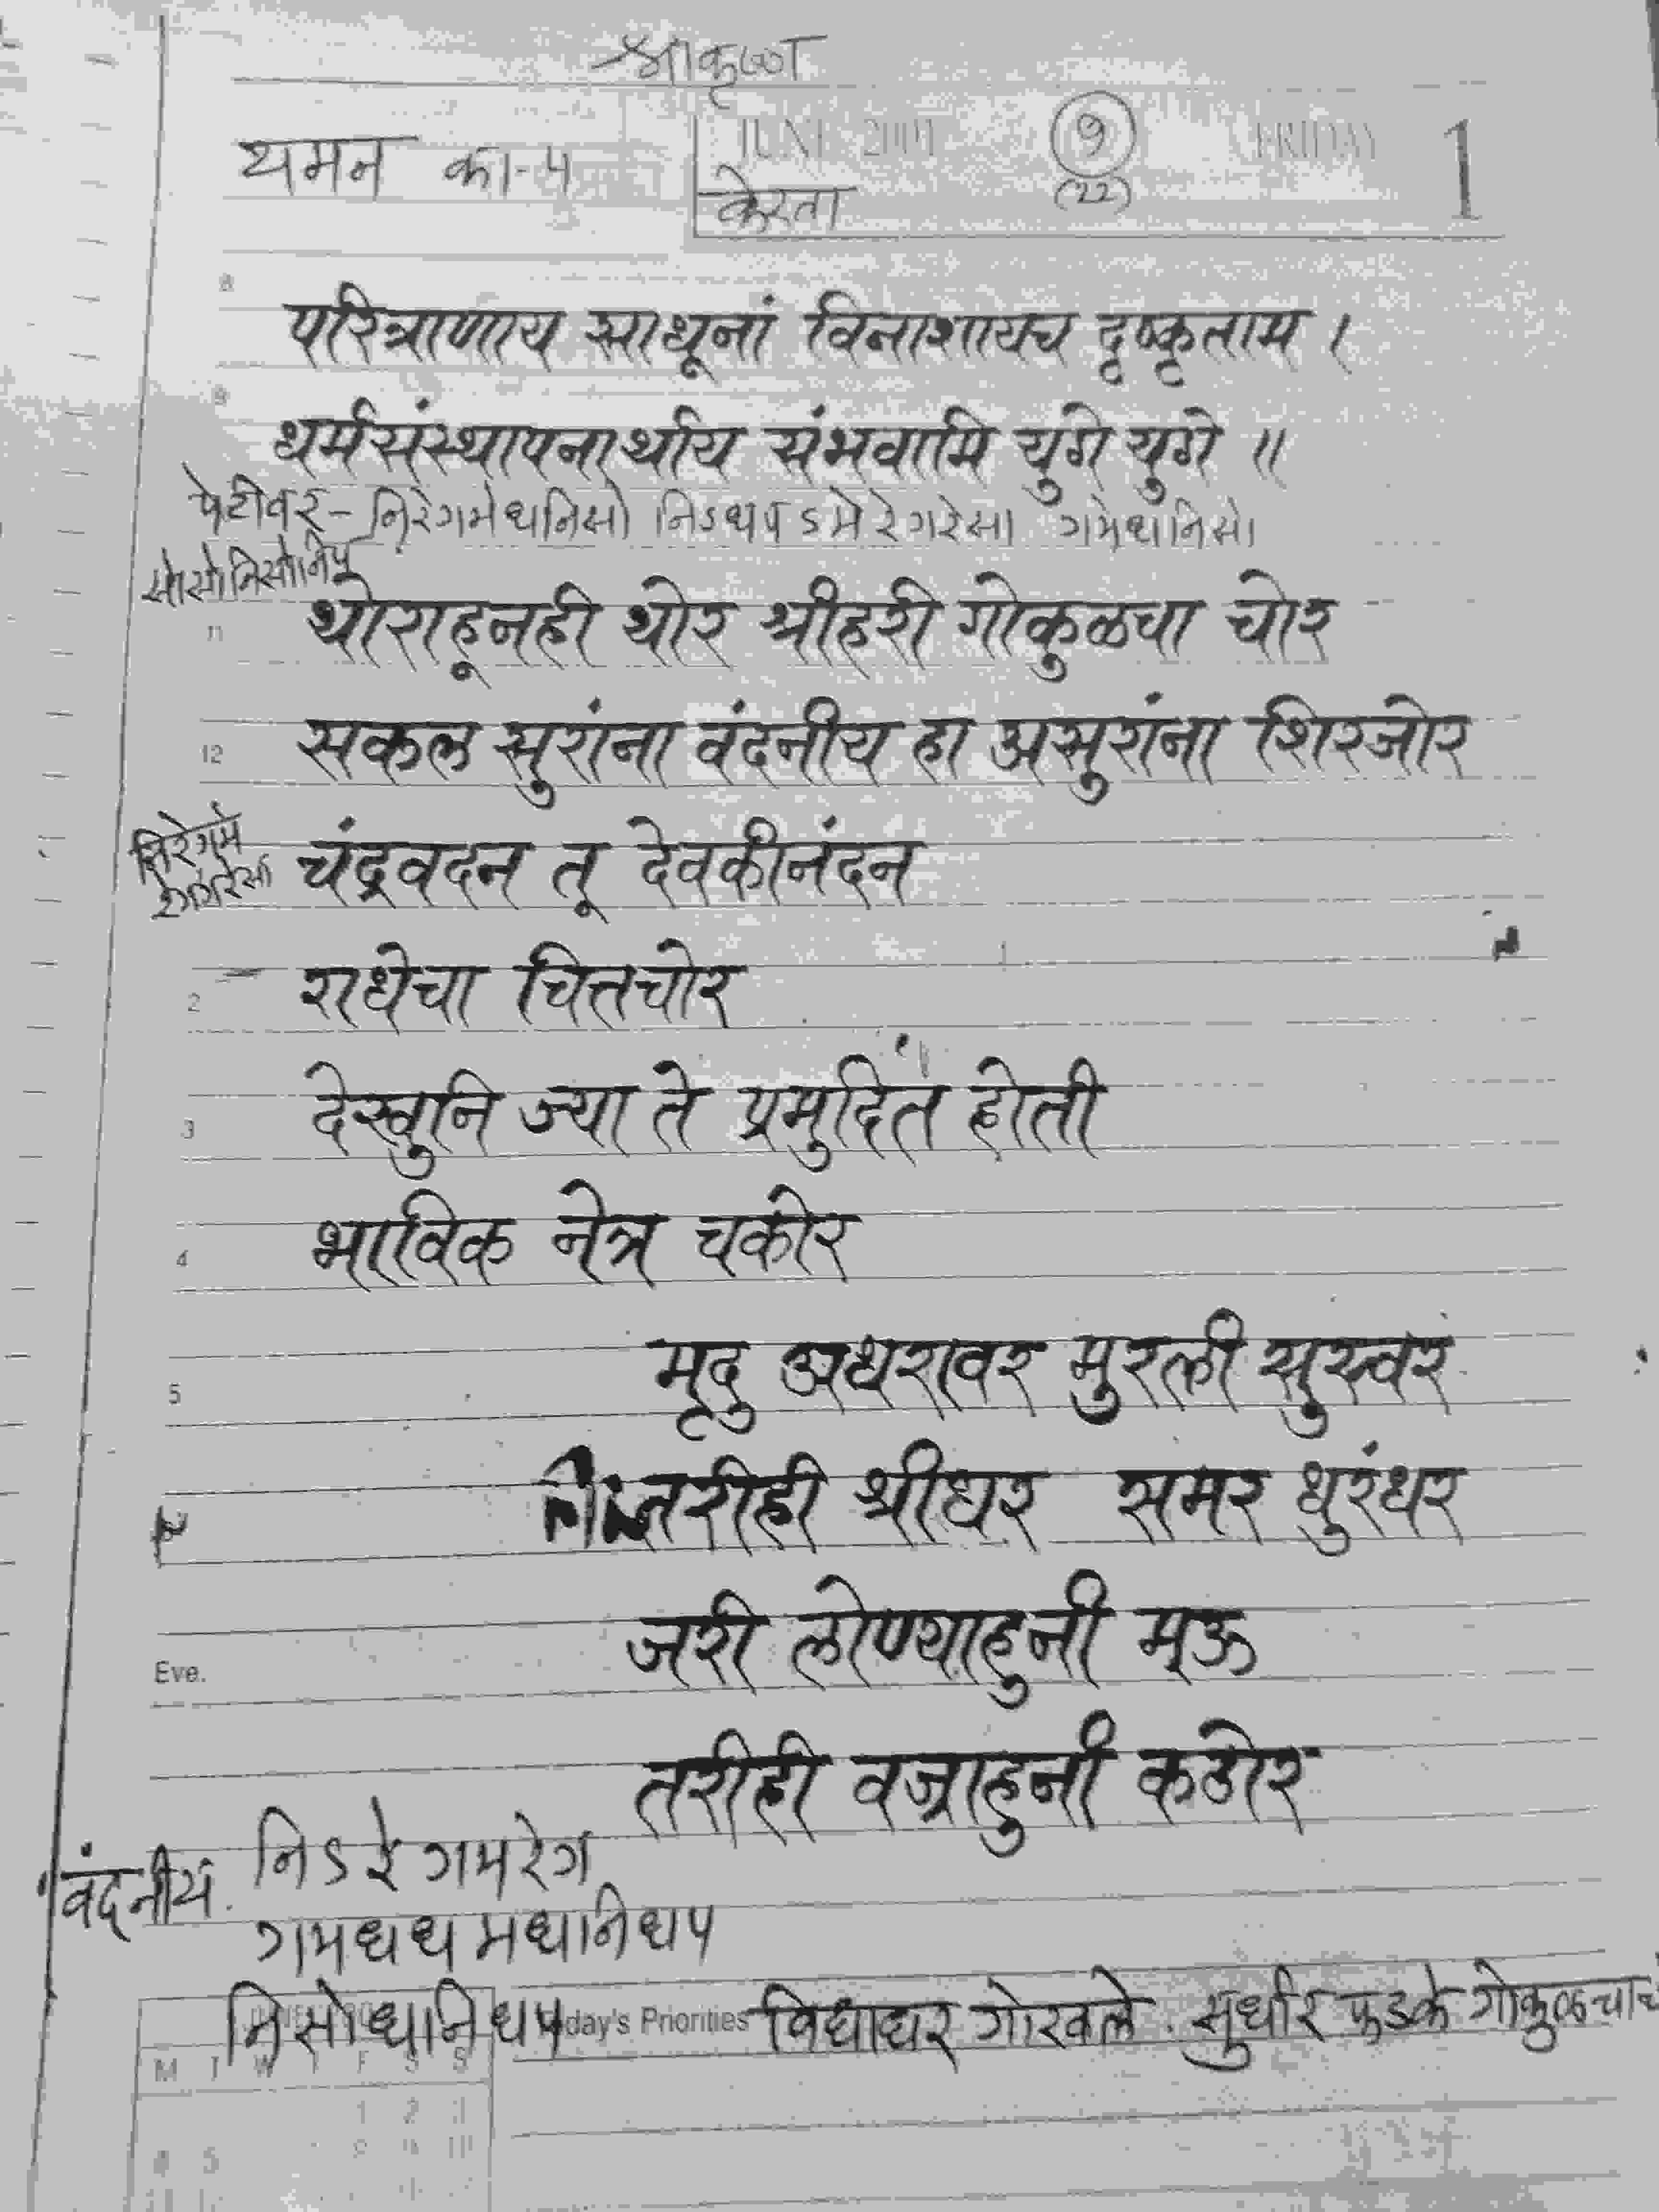 श्रीकृष्ण
यमन का-५
JUNE 2001 ९ FRIDAY 1
केरवा (22)
8
परित्राणाय साधूनां विनाशायच दृष्कृताम ।
9
धर्मसंस्थापनार्थाय संभवामि युगे युगे ॥
पेटीवर - निरेगमेधनिसां निऽधपऽमे रेगरेसा गमेधानिसां
सांसांनिसांनिप
11 थोराहूनही थोर श्रीहरी गोकुळचा चोर
12 सकल सुरांना वंदनीय हा असुरांना शिरजोर
निरेगमे
चंद्रवदन तू देवकीनंदन
2 राधेचा चित्तचोर
3 देखुनि ज्या ते प्रमुदित होती
4 भाविक नेत्र चकोर
5 मृदु अधरावर मुरली सुस्वर
तरीही श्रीधर समर धुरंधर
Eve. जरी लोण्याहुनी मऊ
तरीही वज्राहुनी कठोर
वंदनीय. नि ऽ रे गमरेग
गमधध मधानिधप
निसांधानिधप day's Priorities विद्याधर गोखले. सुधीर फडके गोकुळचा
M T W T F S S
1 2